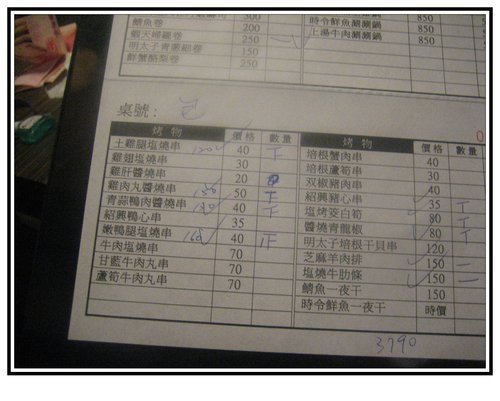 300
鯖魚卷 200
蝦天婦羅卷 250
明太子青蔥細卷 150
鮮蟹酪梨卷 250
850
時令鮮魚涮涮鍋 850
上湯牛肉涮涮鍋 850
桌號：
烤物 價格 數量
土雞腿塩燒串 120 40 下
雞翅塩燒串 30
雞肝醬燒串 20
雞肉丸醬燒串 150 50 下
青蒜鴨肉醬燒串 40 下
紹興鴨心串 35
嫩鴨腿塩燒串 160 40 正
牛肉塩燒串 70
甘藍牛肉丸串 70
蘆筍牛肉丸串 70
烤物 價格 數量
培根蟹肉串 40
培根蘆筍串 30
双椒豬肉串 40
紹興豬心串 35
塩烤茭白筍 80 下
醬燒青龍椒 80 下
明太子培根干貝串 120
芝麻羊肉排 150 二
塩燒牛肋條 150 二
鯖魚一夜干 150
時令鮮魚一夜干 時價
3790